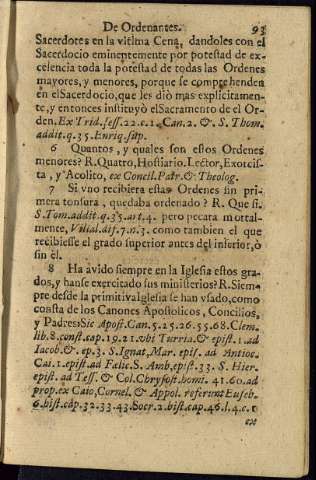 De Ordenantes. 93
Sacerdotes en la vltima Cena, dandoles con el
Sacerdocio eminentemente por potestad de ex-
celencia toda la potestad de todas las Ordenes
mayores, y menores, porque se comprehenden
en el Sacerdocio, que les diò mas explicitamen-
te, y entonces instituyò el Sacramento de el Or-
den. Ex Trid. sess. 22. c. 1. Can. 2. & S. Thom.
addit. q. 35. Enriq. sup.
6 Quantos, y quales son estos Ordenes
menores? R. Quatro, Hostiario. Lector, Exorcis-
ta, y Acolito, ex Concil. Patr. & Theolog.
7 Si vno recibiera estas Ordenes sin pri-
mera tonsura, quedaba ordenado? R. Que si.
S. Tom. addit. q. 35. art. 4. pero pecara mortal-
mente, Villal. dis. 7. n. 3. como tambien el que
recibiesse el grado superior antes del inferior, ò
sin èl.
8 Ha avido siempre en la Iglesia estos gra-
dos, y hanse exercitado sus ministerios? R. Siem-
pre desde la primitiva Iglesia se han vsado, como
consta de los Canones Apostolicos, Concilios,
y Padres: Sic Apost. Can. 5. 25. 26. 55. 68. Clem.
lib. 8. const. cap. 19. 21. vbi Turria. & epist. 1. ad
Iacob. & ep. 3. S. Ignat, Mar. epis. ad Antioc.
Cai. 1. epist. ad Fælic. S. Amb, epist. 33. S. Hier.
epist. ad Tess. & Col. Chrysost. homi. 41. 60. ad
prop. ex Caio, Cornel. & Appol. referunt Euseb.
6. hist. cap. 32. 33. 43. Socr. 2. hist. cap. 46. l. 4. c.
ex